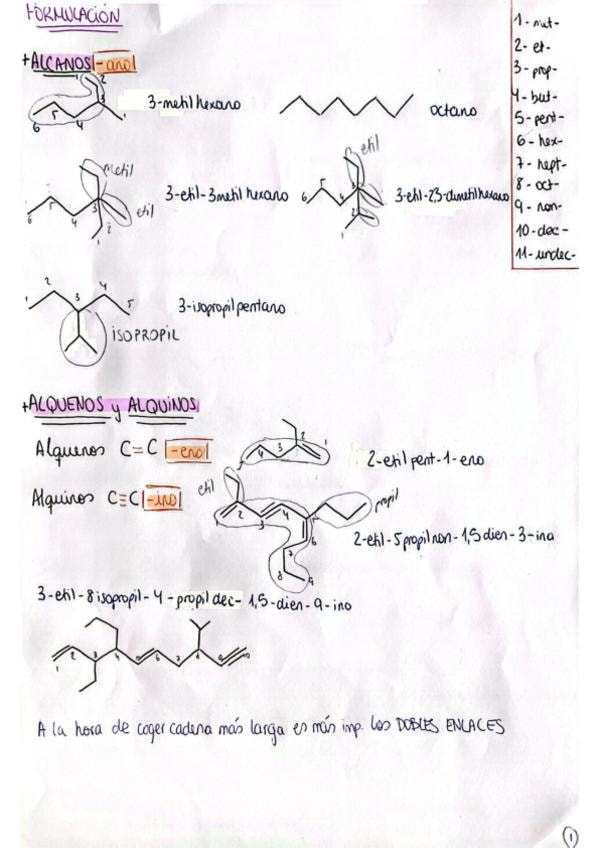 FORMULACIÓN
+ALCANOS -ano
3-metilhexano
octano
metil
etil
3-etil-3metil hexano
etil
3-etil-2,3-dimetilhexano
3-isopropilpentano
ISOPROPIL
+ALQUENOS y ALQUINOS
Alquenos C=C -eno
2-etil pent-1-eno
Alquinos C≡C -ino
etil
propil
2-etil-5propil non-1,5dien-3-ina
3-etil-8isopropil-4-propil dec-1,5-dien-9-ino
A la hora de coger cadena más larga es más imp. los DOBLES ENLACES
1-met-
2-et-
3-prop-
4-but-
5-pent-
6-hex-
7-hept-
8-oct-
9-non-
10-dec-
11-undec-
1